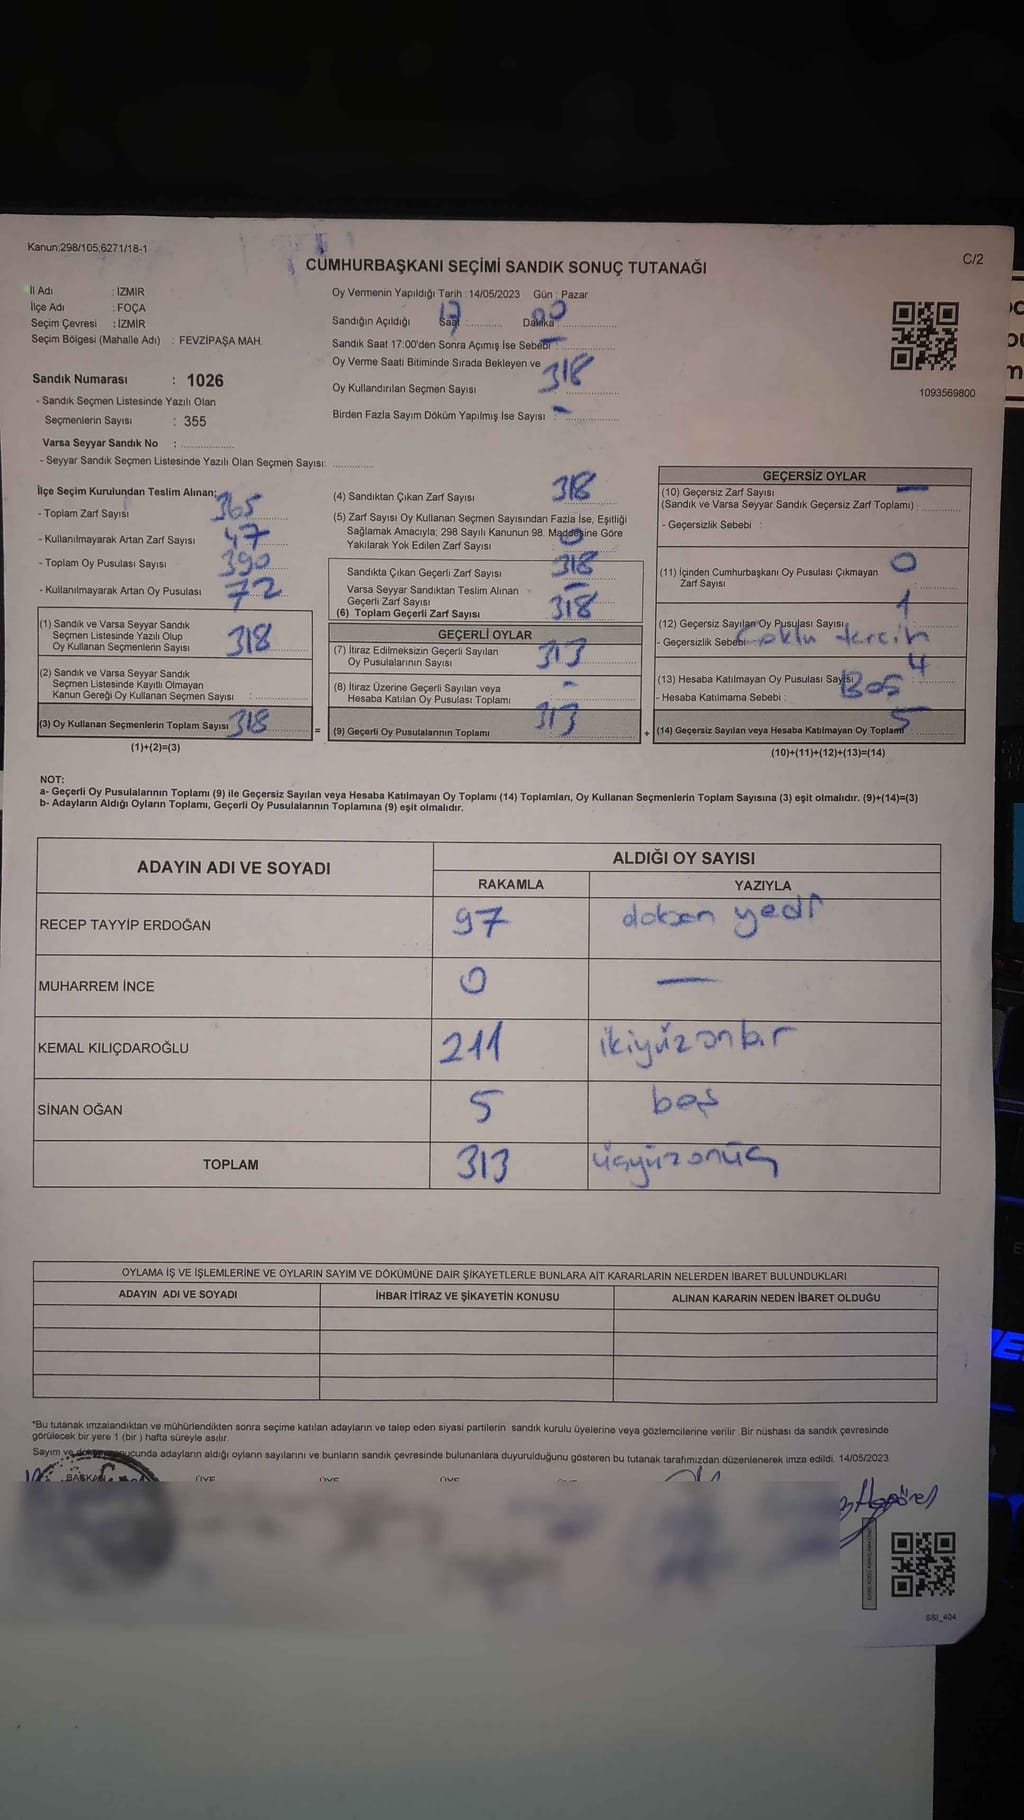 Kanun;298/105;6271/18-1
C/2
CUMHURBAŞKANI SEÇİMİ SANDIK SONUÇ TUTANAĞI
İl Adı : İZMİR
İlçe Adı : FOÇA
Seçim Çevresi : İZMİR
Seçim Bölgesi (Mahalle Adı) : FEVZİPAŞA MAH.
Sandık Numarası : 1026
- Sandık Seçmen Listesinde Yazılı Olan
Seçmenlerin Sayısı : 355
Varsa Seyyar Sandık No :
- Seyyar Sandık Seçmen Listesinde Yazılı Olan Seçmen Sayısı:
Oy Vermenin Yapıldığı Tarih : 14/05/2023 Gün : Pazar
Sandığın Açıldığı Saat : 17 Dakika : 00
Sandık Saat 17:00'den Sonra Açımış İse Sebebi : –
Oy Verme Saati Bitiminde Sırada Bekleyen ve
Oy Kullandırılan Seçmen Sayısı 318
Birden Fazla Sayım Döküm Yapılmış İse Sayısı : –
1093569800
İlçe Seçim Kurulundan Teslim Alınan;
- Toplam Zarf Sayısı 365
- Kullanılmayarak Artan Zarf Sayısı 47
- Toplam Oy Pusulası Sayısı 390
- Kullanılmayarak Artan Oy Pusulası 72
(1) Sandık ve Varsa Seyyar Sandık
Seçmen Listesinde Yazılı Olup
Oy Kullanan Seçmenlerin Sayısı 318
(2) Sandık ve Varsa Seyyar Sandık
Seçmen Listesinde Kayıtlı Olmayan
Kanun Gereği Oy Kullanan Seçmen Sayısı :
(3) Oy Kullanan Seçmenlerin Toplam Sayısı 318
(1)+(2)=(3)
=
(4) Sandıktan Çıkan Zarf Sayısı 318
(5) Zarf Sayısı Oy Kullanan Seçmen Sayısından Fazla İse, Eşitliği
Sağlamak Amacıyla; 298 Sayılı Kanunun 98. Maddesine Göre
Yakılarak Yok Edilen Zarf Sayısı 0
Sandıkta Çıkan Geçerli Zarf Sayısı 318
Varsa Seyyar Sandıktan Teslim Alınan
Geçerli Zarf Sayısı –
(6) Toplam Geçerli Zarf Sayısı 318
GEÇERLİ OYLAR
(7) İtiraz Edilmeksizin Geçerli Sayılan
Oy Pusulalarının Sayısı 313
(8) İtiraz Üzerine Geçerli Sayılan veya
Hesaba Katılan Oy Pusulası Toplamı –
(9) Geçerli Oy Pusulalarının Toplamı 313
+
GEÇERSİZ OYLAR
(10) Geçersiz Zarf Sayısı –
(Sandık ve Varsa Seyyar Sandık Geçersiz Zarf Toplamı) :
- Geçersizlik Sebebi :
(11) İçinden Cumhurbaşkanı Oy Pusulası Çıkmayan 0
Zarf Sayısı :
(12) Geçersiz Sayılan Oy Pusulası Sayısı 1
- Geçersizlik Sebebi : Çoklu tercih
(13) Hesaba Katılmayan Oy Pusulası Sayısı 4
- Hesaba Katılmama Sebebi : Boş
(14) Geçersiz Sayılan veya Hesaba Katılmayan Oy Toplamı : 5
(10)+(11)+(12)+(13)=(14)
NOT:
a- Geçerli Oy Pusulalarının Toplamı (9) ile Geçersiz Sayılan veya Hesaba Katılmayan Oy Toplamı (14) Toplamları, Oy Kullanan Seçmenlerin Toplam Sayısına (3) eşit olmalıdır. (9)+(14)=(3)
b- Adayların Aldığı Oyların Toplamı, Geçerli Oy Pusulalarının Toplamına (9) eşit olmalıdır.
ADAYIN ADI VE SOYADI ALDIĞI OY SAYISI
RAKAMLA YAZIYLA
RECEP TAYYİP ERDOĞAN 97 doksan yedi
MUHARREM İNCE 0 —
KEMAL KILIÇDAROĞLU 211 ikiyüz onbir
SİNAN OĞAN 5 beş
TOPLAM 313 üçyüzonüç
OYLAMA İŞ VE İŞLEMLERİNE VE OYLARIN SAYIM VE DÖKÜMÜNE DAİR ŞİKAYETLERLE BUNLARA AİT KARARLARIN NELERDEN İBARET BULUNDUKLARI
ADAYIN ADI VE SOYADI İHBAR İTİRAZ VE ŞİKAYETİN KONUSU ALINAN KARARIN NEDEN İBARET OLDUĞU
*Bu tutanak imzalandıktan ve mühürlendikten sonra seçime katılan adayların ve talep eden siyasi partilerin sandık kurulu üyelerine veya gözlemcilerine verilir. Bir nüshası da sandık çevresinde
görülecek bir yere 1 (bir ) hafta süreyle asılır.
Sayım ve sonucunda adayların aldığı oyların sayılarını ve bunların sandık çevresinde bulunanlara duyurulduğunu gösteren bu tutanak tarafımızdan düzenlenerek imza edildi. 14/05/2023
BAŞKAN ÜYE ÜYE ÜYE
SSI_404